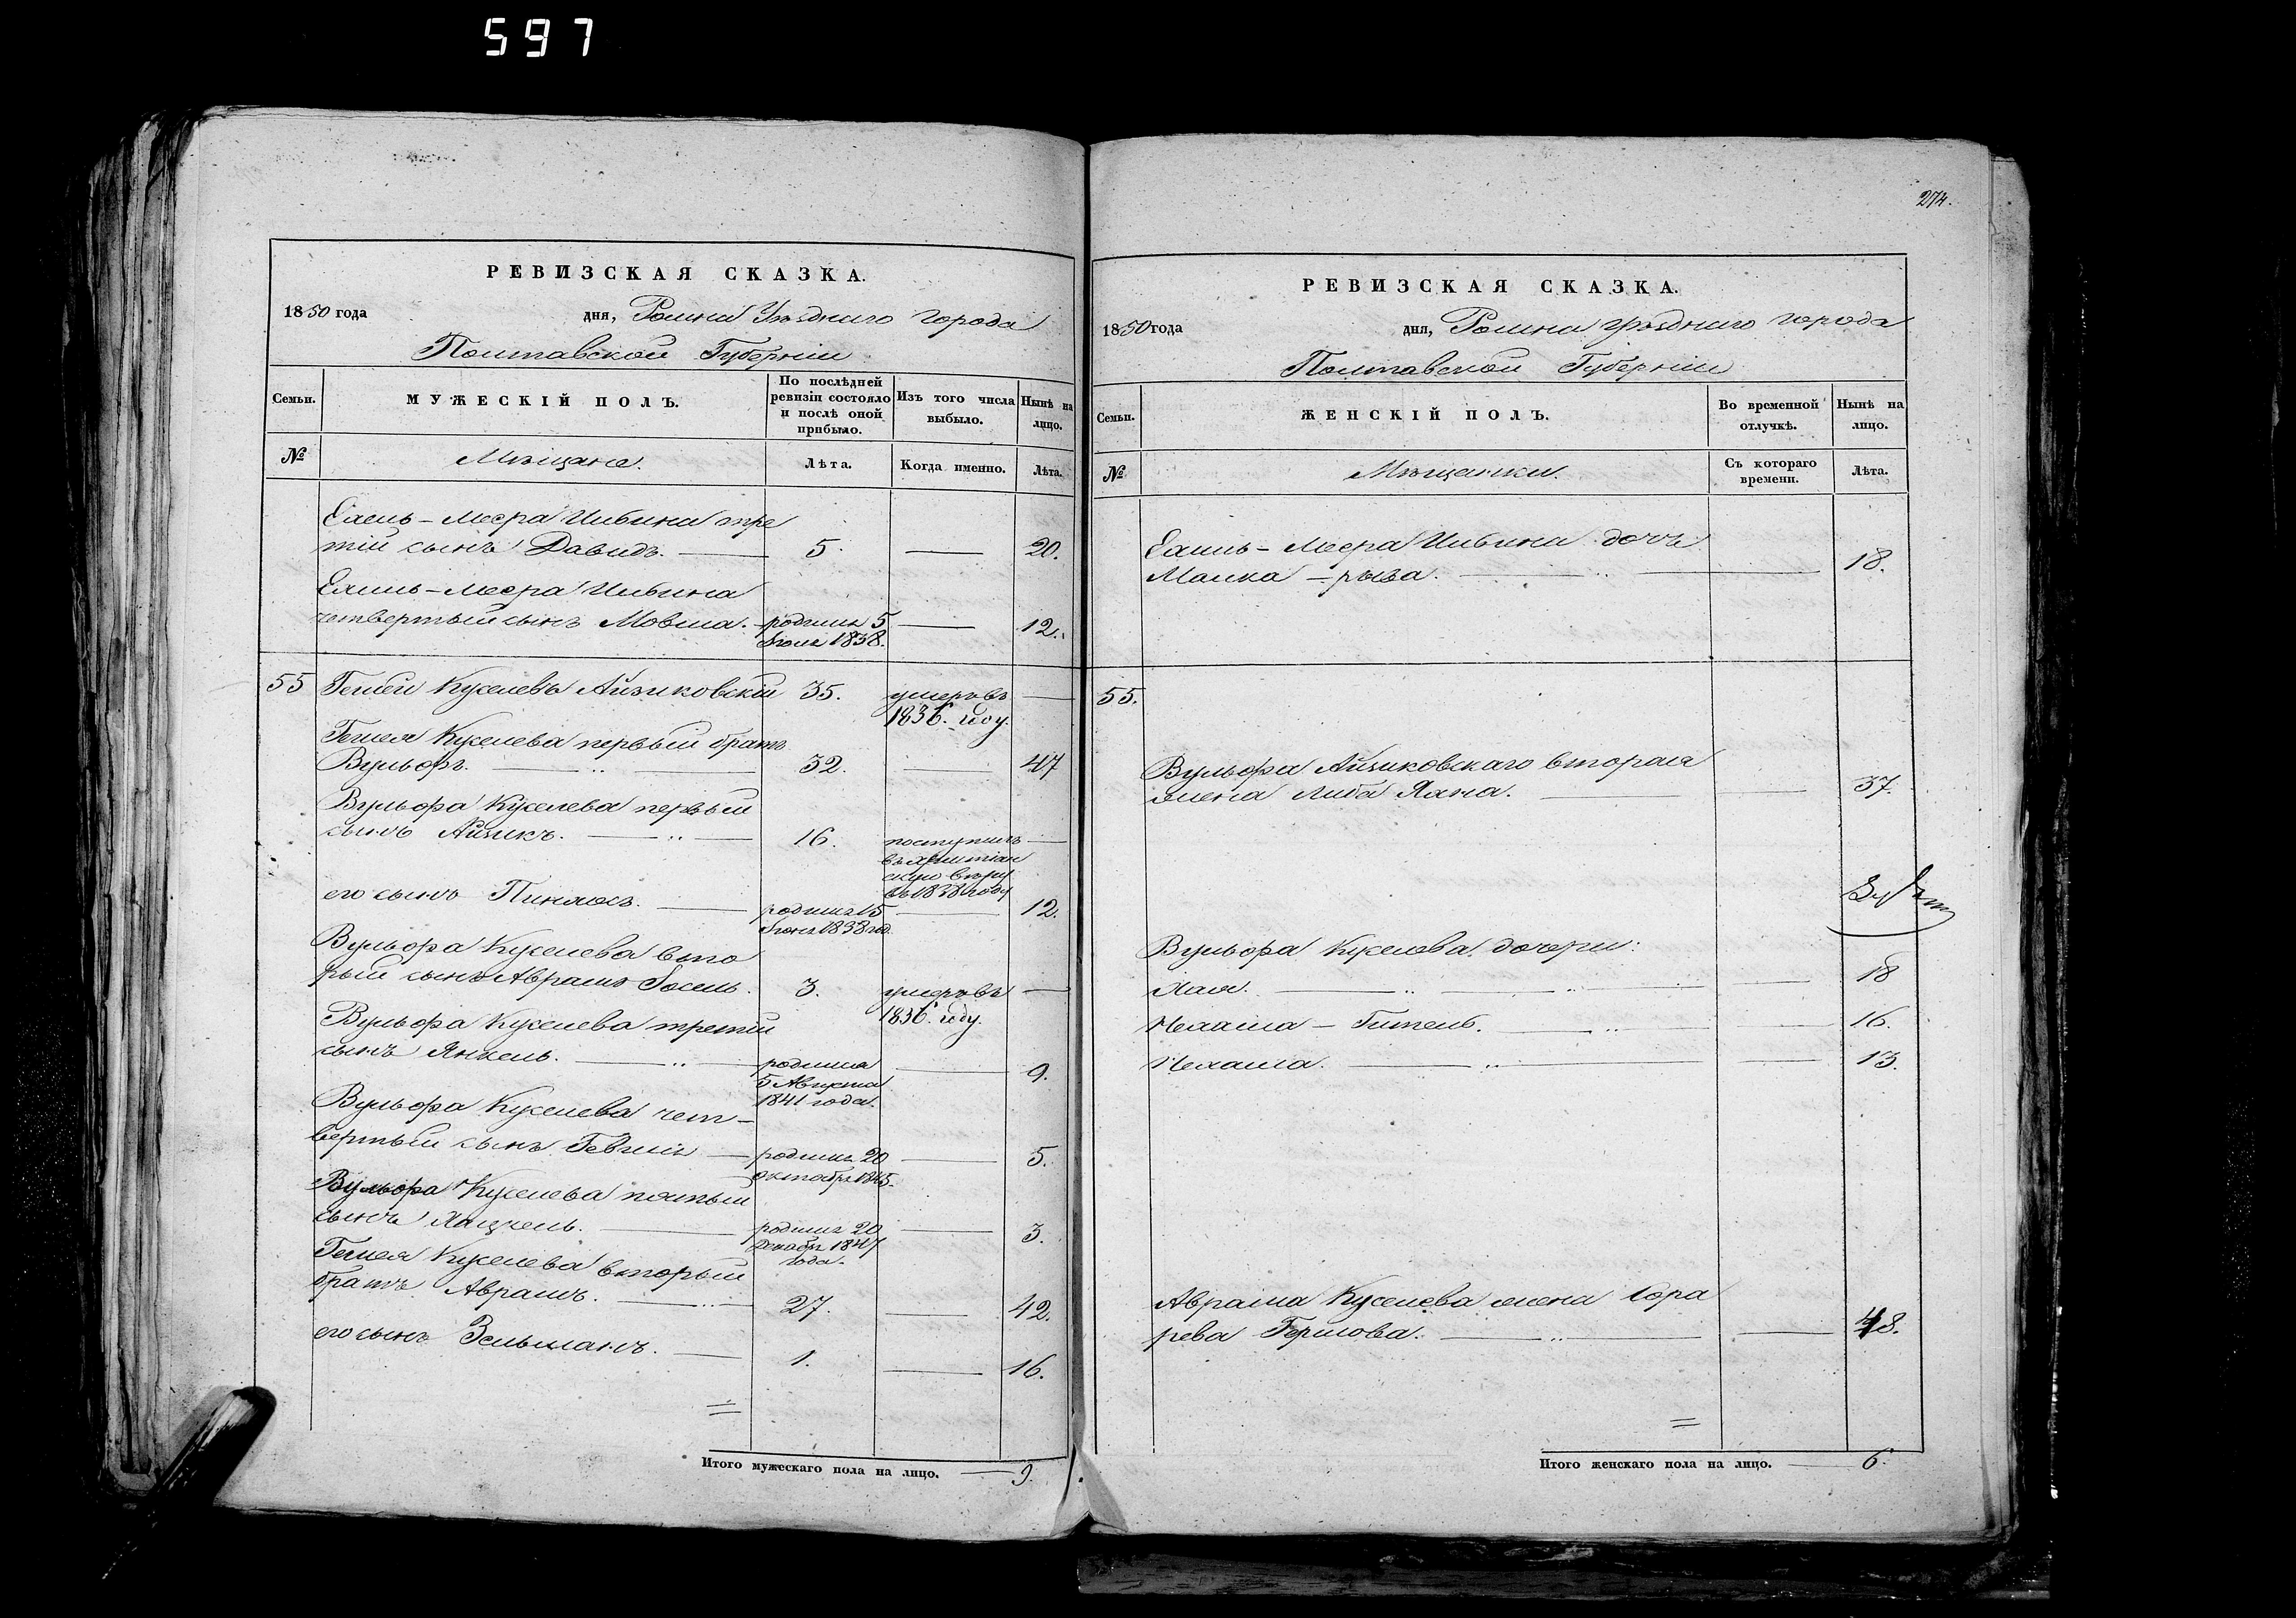 597
РЕВИЗСКАЯ СКАЗКА.
1850 года дня, Ромна Уѣзднаго города
Полтавской Губерніи
Семьи.
МУЖЕСКІЙ ПОЛЪ.
По послѣдней ревизіи состояло и послѣ оной прибыло.
Изъ того числа выбыло.
Нынѣ на лицо.
№
Мѣщане.
Лѣта.
Когда именно.
Лѣта.
третій сынъ Давидъ. 5. 20.
четвертый сынъ Мовша. родился 5 12.
Іюля 1838.
55 Куселевъ Айзиковскій 35. умеръ въ
1836. году.
Куселева первый братъ
Вульфъ. 32. 47
Вульфа Куселева первый
сынъ Айзикъ. 16. поступилъ
въ христіан
скую вѣру
въ 1838 году
его сынъ Пинхосъ. родился 15 12.
Іюня 1838 год.
Вульфа Куселева вто
рый сынъ Абрамъ Іосель. 3. умеръ въ
1836. году.
Вульфа Куселева третій
сынъ Янкель. родился 9.
5 Августа
1841 года.
Вульфа Куселева чет-
вертый сынъ родился 20 5.
Октября 1845.
Вульфа Куселева пятый
сынъ Хацкель. родился 20 3.
Декабря 1847
года.
Куселева вторый
братъ Абрамъ. 27. 42.
его сынъ Зельманъ. 1. 16.
Итого мужескаго пола на лицо. 9.
274.
РЕВИЗСКАЯ СКАЗКА.
1850 года дня, Ромна уѣзднаго города
Полтавской Губерніи
Семьи.
ЖЕНСКІЙ ПОЛЪ.
Во временной отлучкѣ.
Нынѣ на лицо.
№
Мѣщанки.
Съ котораго времени.
Лѣта.
дочь
Малка - рыва. 18.
55.
Вульфа Айзиковскаго вторая
жена Либа Хана. 37.
Вульфа Куселева дочери:
Хая. 18
Нехама - Гитель. 16.
Нехама. 13.
Абрама Куселева жена Сора
рева Гершова. 48.
Итого женскаго пола на лицо. 6.